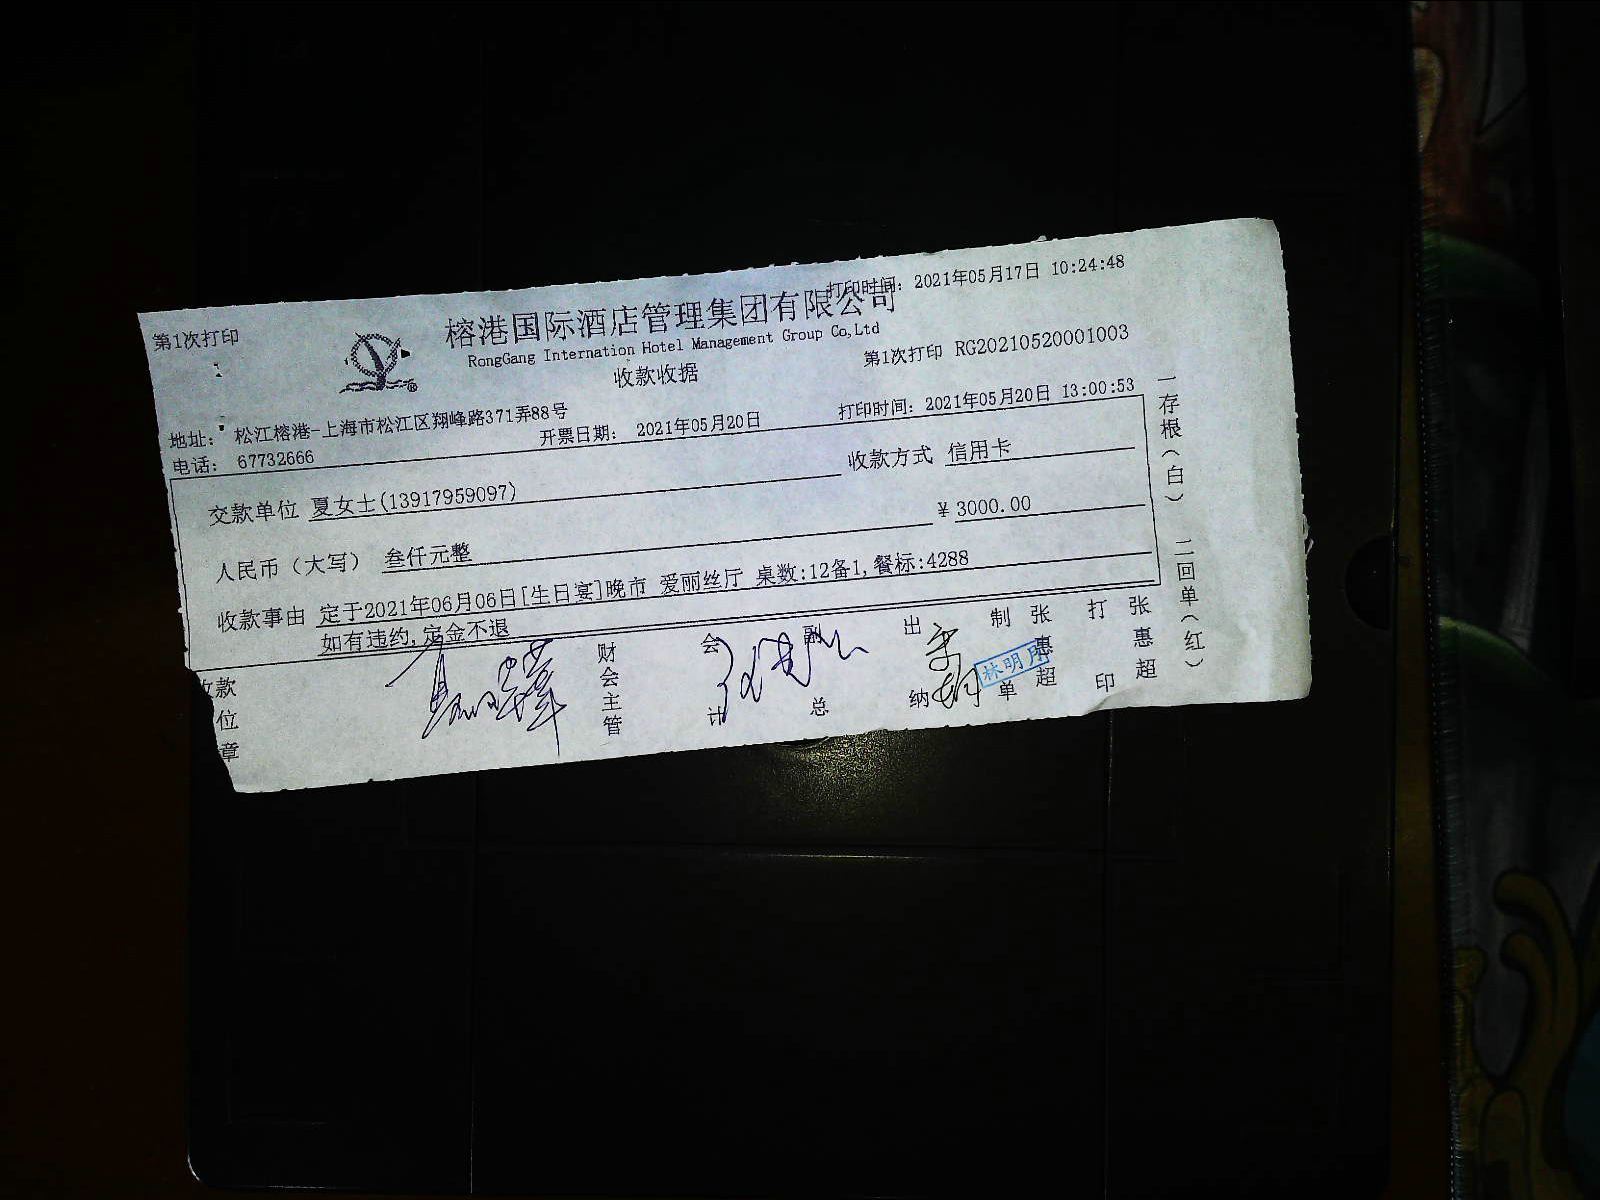 打印时间: 2021年05月17日 10:24:48
第1次打印
榕港国际酒店管理集团有限公司
RongGang Internation Hotel Management Group Co,Ltd
第1次打印 RG20210520001003
收款收据
地址: 松江榕港-上海市松江区翔峰路371弄88号
开票日期: 2021年05月20日
打印时间: 2021年05月20日 13:00:53
电话: 67732666
交款单位 夏女士(13917959097)
收款方式 信用卡
人民币(大写) 叁仟元整
¥ 3000.00
收款事由 定于2021年06月06日[生日宴]晚市 爱丽丝厅 桌数:12备1,餐标:4288
如有违约,定金不退
收款
位
章
财会主管
会计
副总
出纳
林明月
制单
张惠超
打印
张惠超
一存根(白) 二回单(红)